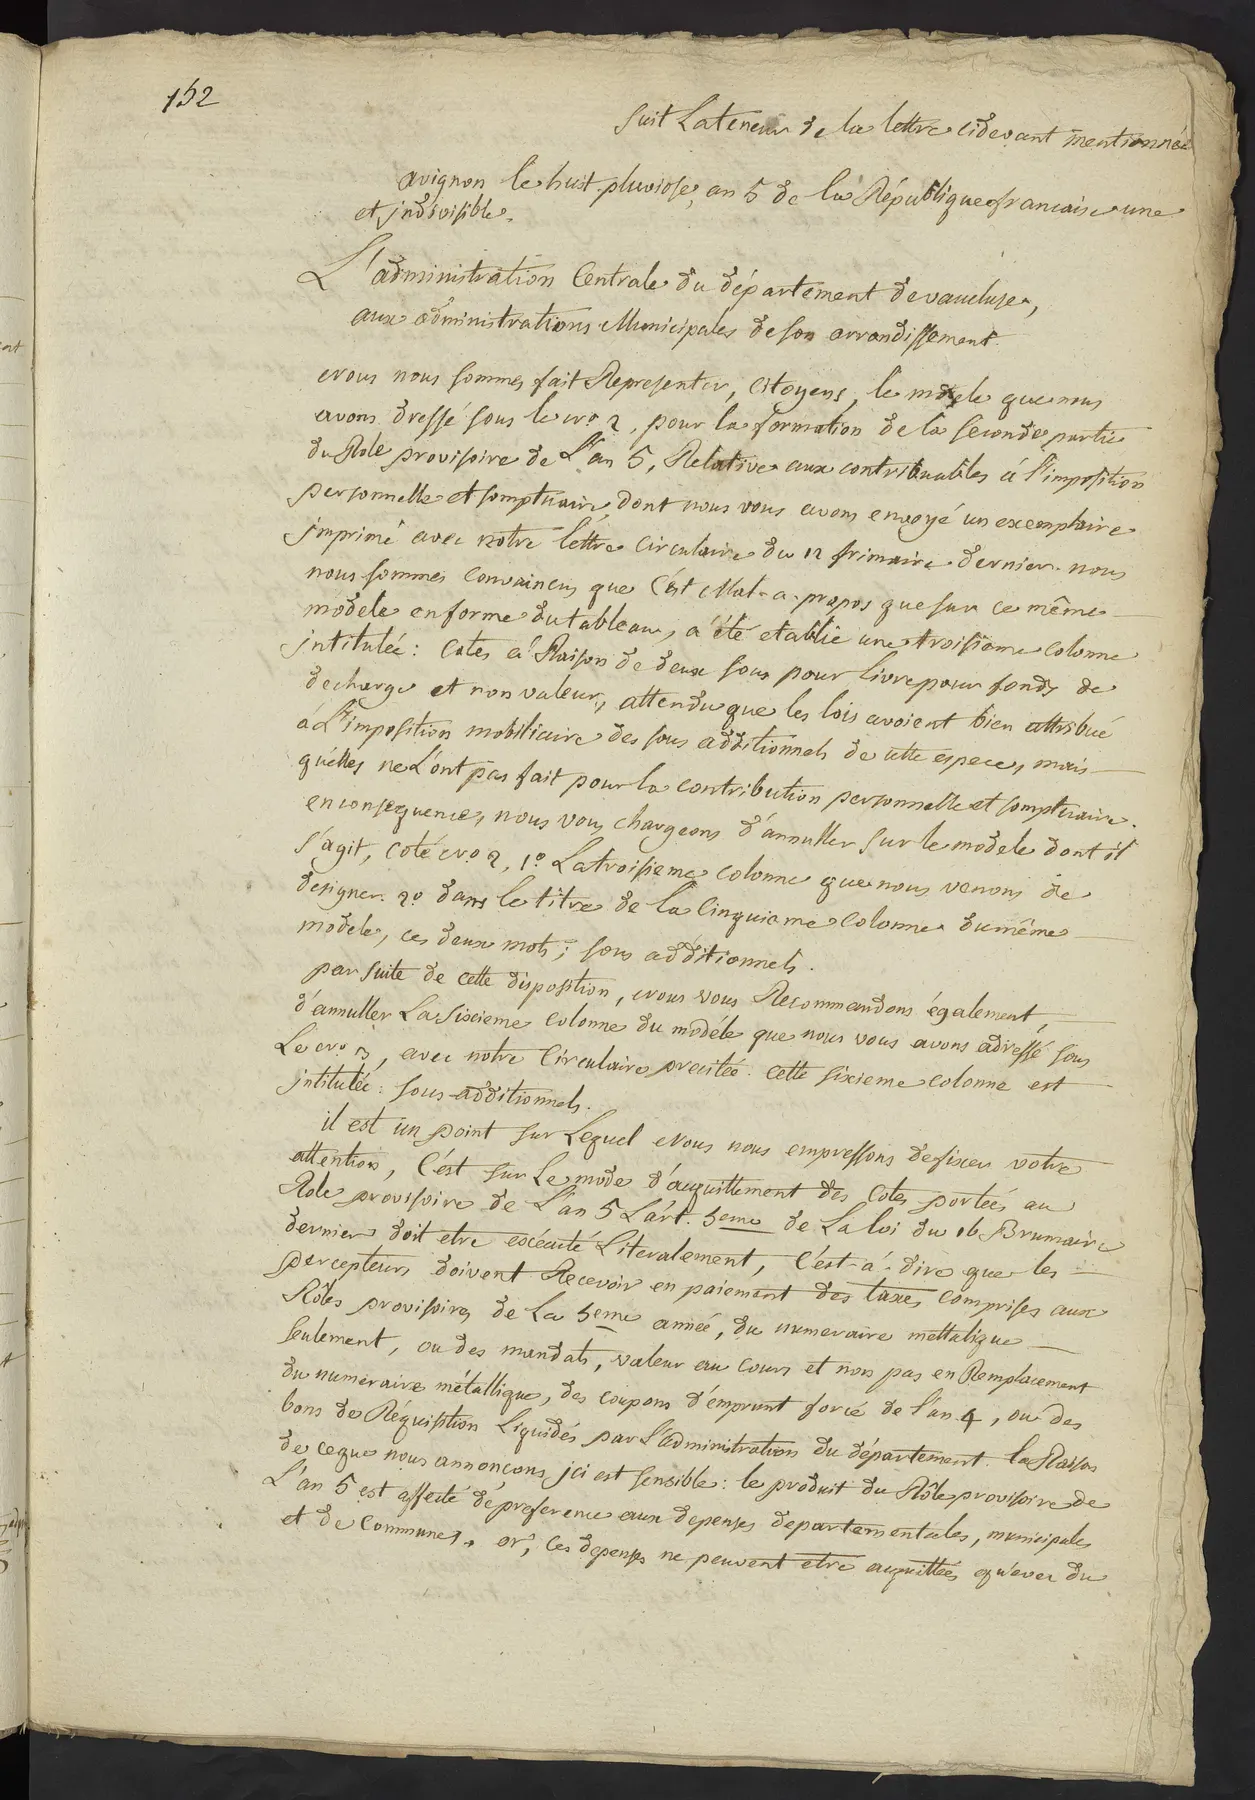 152
suit Lateneur de la lettre cidevant mentionnée
avignon le huit pluviose, an 5 de la République francaise une
et jndivisible.
L'administration Centrale du département devaucluse,
aux administrations Municipales deson arrondissement.
Nous nous sommes fait Representer, Citoyens, le modele que nous
avons dressé sous le No 2, pour la formation de la seconde partie
du Role provisoire de L'an 5, Relative aux contribuables á l'imposition
personnelle et somptuaire, dont nous vous avons envoyé un exemplaire
jmprimé avec notre lettre Circulaire du 12 frimaire dernier. nous
nous sommes Convaincus que C'est Mal-a-propos que sur ce même
modele en forme du tableau, a été etablie une troisieme colonne
jntitulée: Cotes á Raison de deux sous pour livre pour fonds de
decharge et non valeur, attendu que les lois avoient bien attribué
á L'imposition mobiliaire des sous additionnels de cette espece, mais
qu'elles ne L'ont pas fait pour la contribution personnelle et somptuaire.
en consequence, nous vous chargeons d'annuller sur le modele dont il
s'agit, coté No 2, 1o La troisieme colonne que nous venons de
designer. 2o dans le titre de la Cinquieme Colonne du même
modele, ces deux mots; sous additionnels.
par suite de cette disposition, Nous vous Recommandons également,
d'annuller La Sixieme colonne du modéle que nous vous avons adressé sous
Le No 3, avec notre Circulaire precitée. cette sixieme colonne est
jntitulée: sous additionnels.
il est un point sur Lequel Nous nous empressons defixer votre
attention, C'est sur Le mode d'acquittement des Cotes portées au
Role provisoire de L'an 5 L'art. 5eme de La loi du 16 Brumaire
dernier doit etre exécuté Literalement, C'est-á-dire que les
percepteurs doivent Recevoir en paiement des taxes comprises aux
Rôles provisoires de La 5eme année, du numeraire mettalique
seulement, ou des mandats, valeur au cours et non pas en Remplacement
du numeraire métallique, des coupons d'emprunt forcé de l'an 4, ou des
bons de Réquisition Liquidés par L'administration du département. la Raison
de ceque nous annonçons jci est sensible: le produit du Rôle provisoire de
L'an 5 est affecté de preference aux depenses departementales, municipales
et de Communes. or, Ces depenses ne peuvent etre acquittées qu'avec du